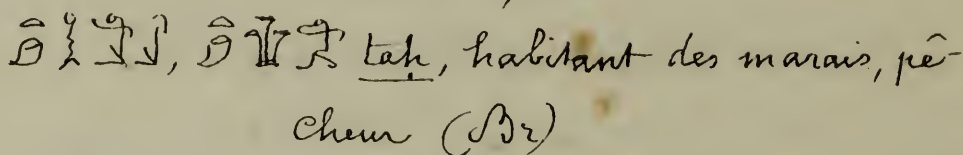 , taḥ, habitant des marais, pê-
cheur (Br)